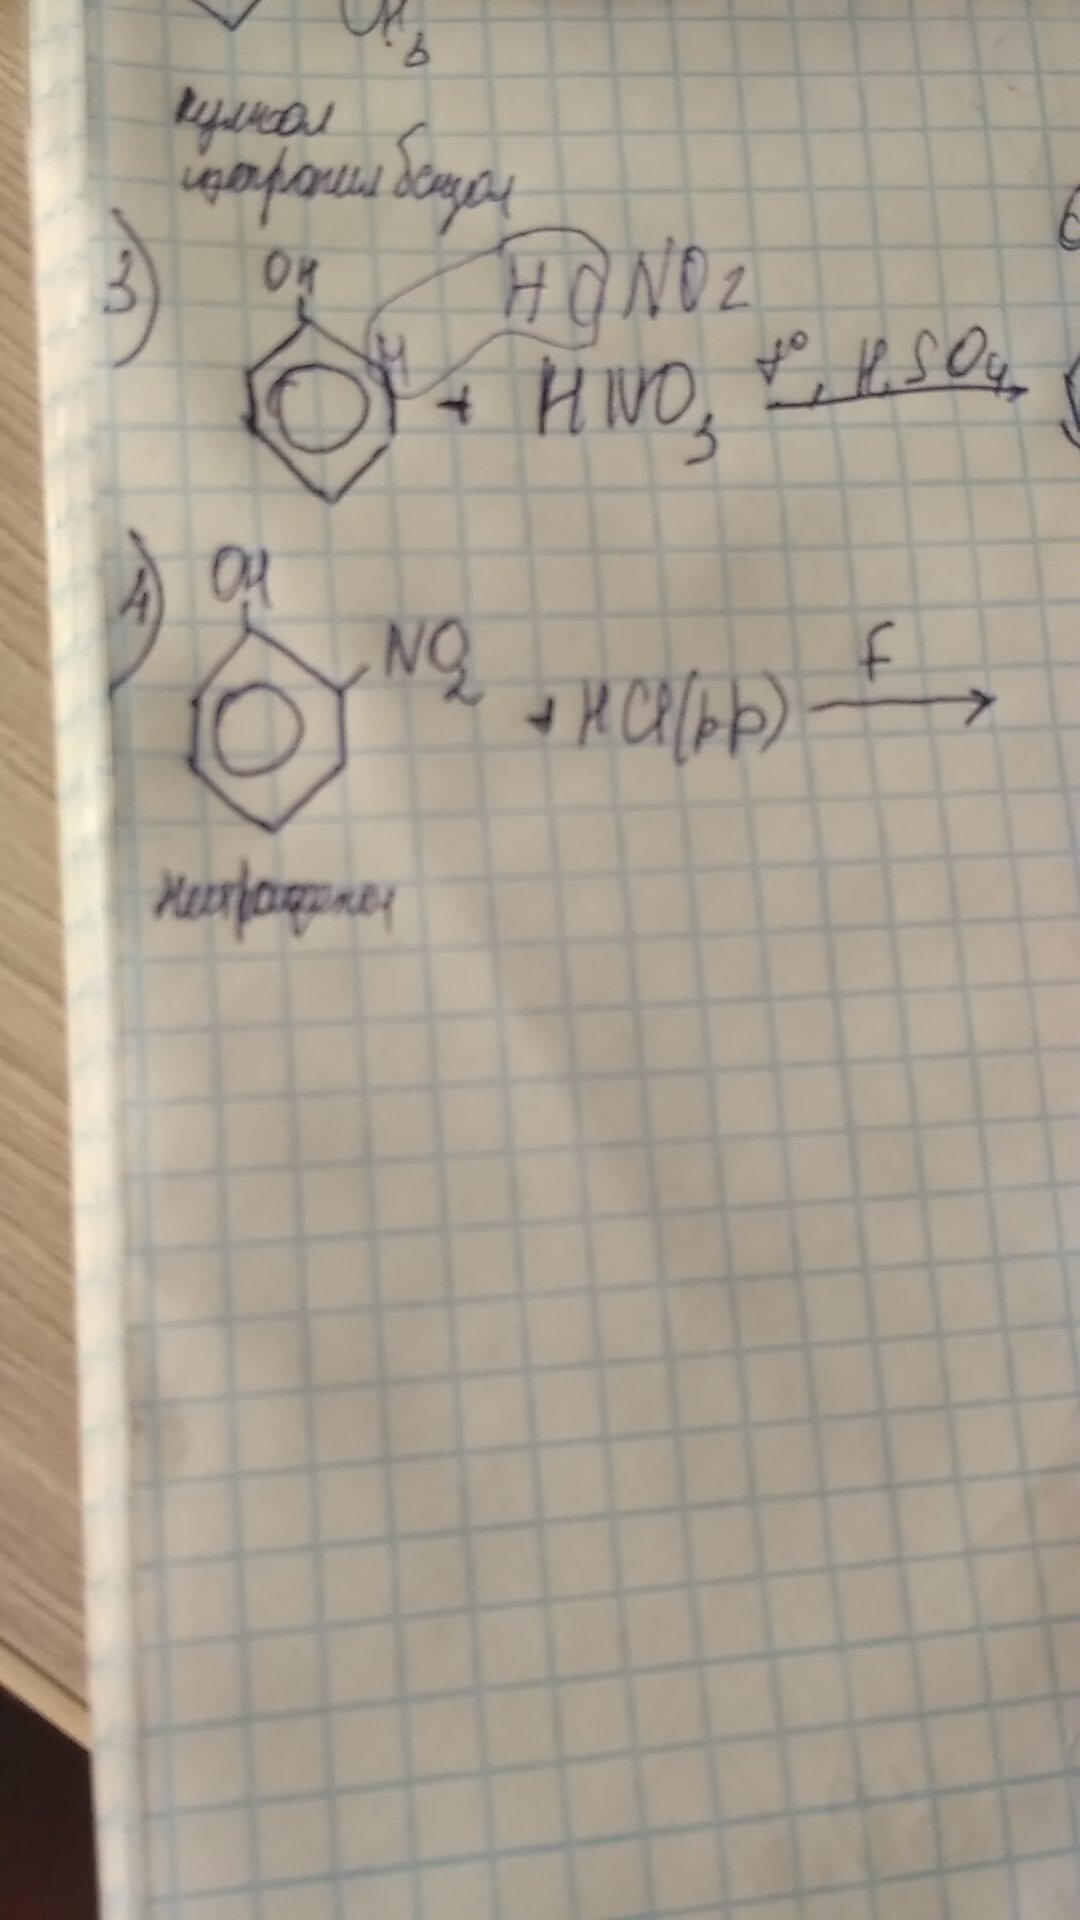 CH3
кумиол
изопропил бензол
3)
OH
H O NO2
H
+ HNO3 t°, H2SO4
4)
OH
NO2
+ HCl(рр) F
Нитрофенол